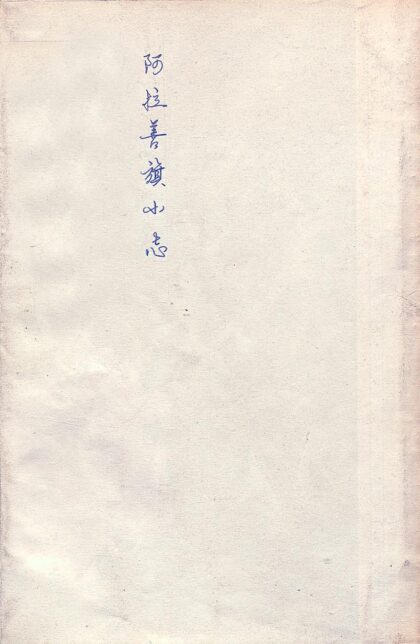 阿拉善旗小志